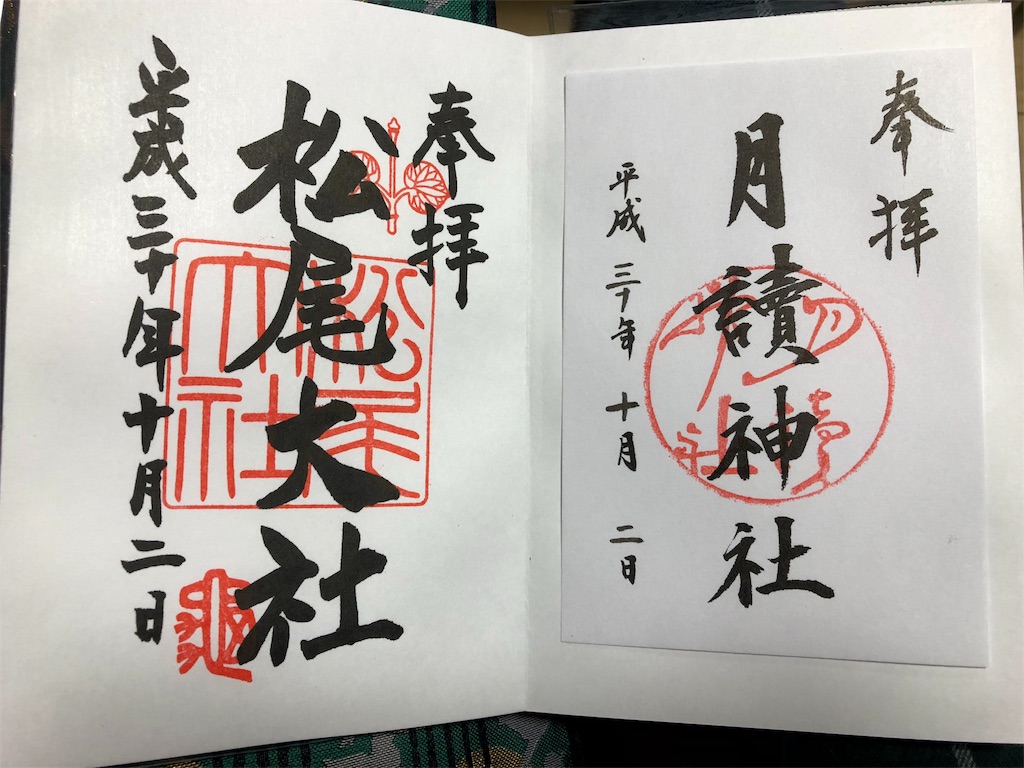 奉拝
月讀神社
平成三十年十月二日
奉拝
松尾大社
平成三十年十月二日
松尾大社